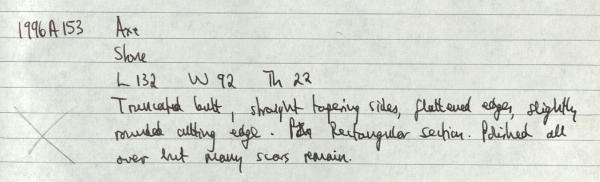 1996A153 Axe
Stone
L 132 W 92 Th 22
Truncated butt, straight tapering sides, flattened edges, slightly
rounded cutting edge. Rectangular section. Polished all
over but many scars remain.